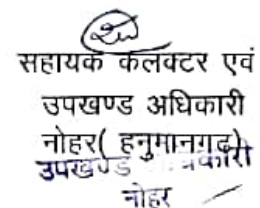 सहायक कलक्टर एवं
उपखण्ड अधिकारी
नोहर( हनुमानगढ)
उपखण्ड अधिकारी
नोहर